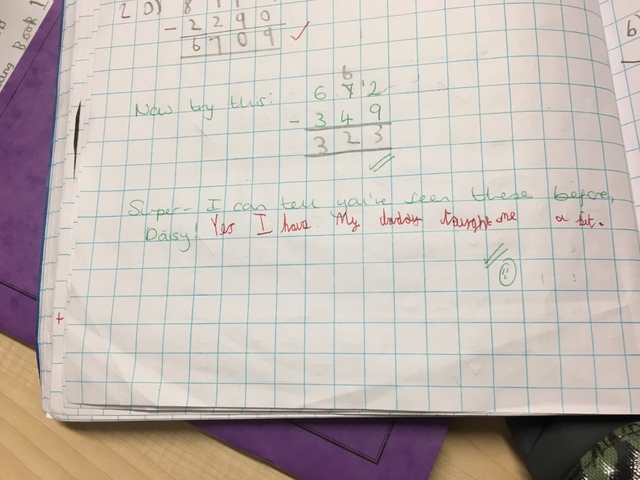 2 0)
- 2 2 9 0
6 7 0 9
6
Now try this: 6 7 12
- 3 4 9
3 2 3
Super- I can tell you've seen these before,
Daisy! Yes I have. My daddy taught me a bit.